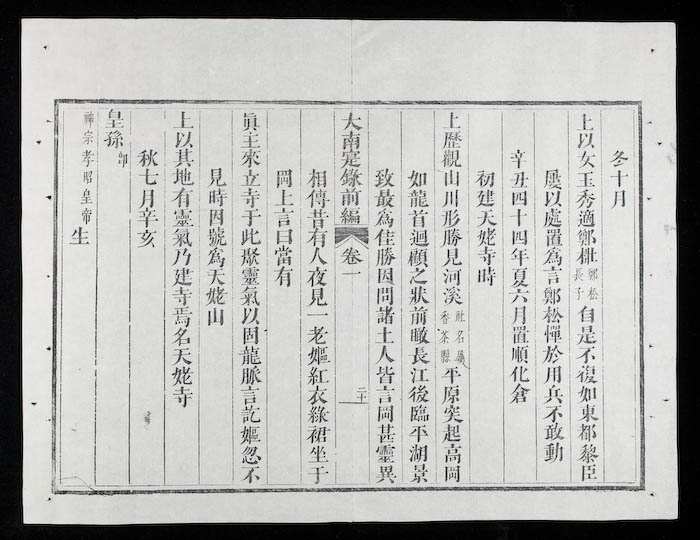 冬十月
上以女玉秀適鄭梉鄭松長子自是不復如東都黎臣
屢以處置爲言鄭松憚於用兵不敢動
辛丑四十四年夏六月置順化倉
初建天姥寺時
上歷觀山川形勝見河溪社名屬香茶縣平原突起高岡
如龍首迴顧之狀前瞰長江後臨平湖景
致最爲佳勝因問諸土人皆言岡甚靈異
大南寔錄前編 卷一 二十
相傳昔有人夜見一老嫗紅衣綠裙坐于
岡上言曰當有
眞主來立寺于此聚靈氣以固龍脈言訖嫗忽不
見時因號爲天姥山
上以其地有靈氣乃建寺焉名天姥寺
秋七月辛亥
皇孫卽神宗孝昭皇帝生